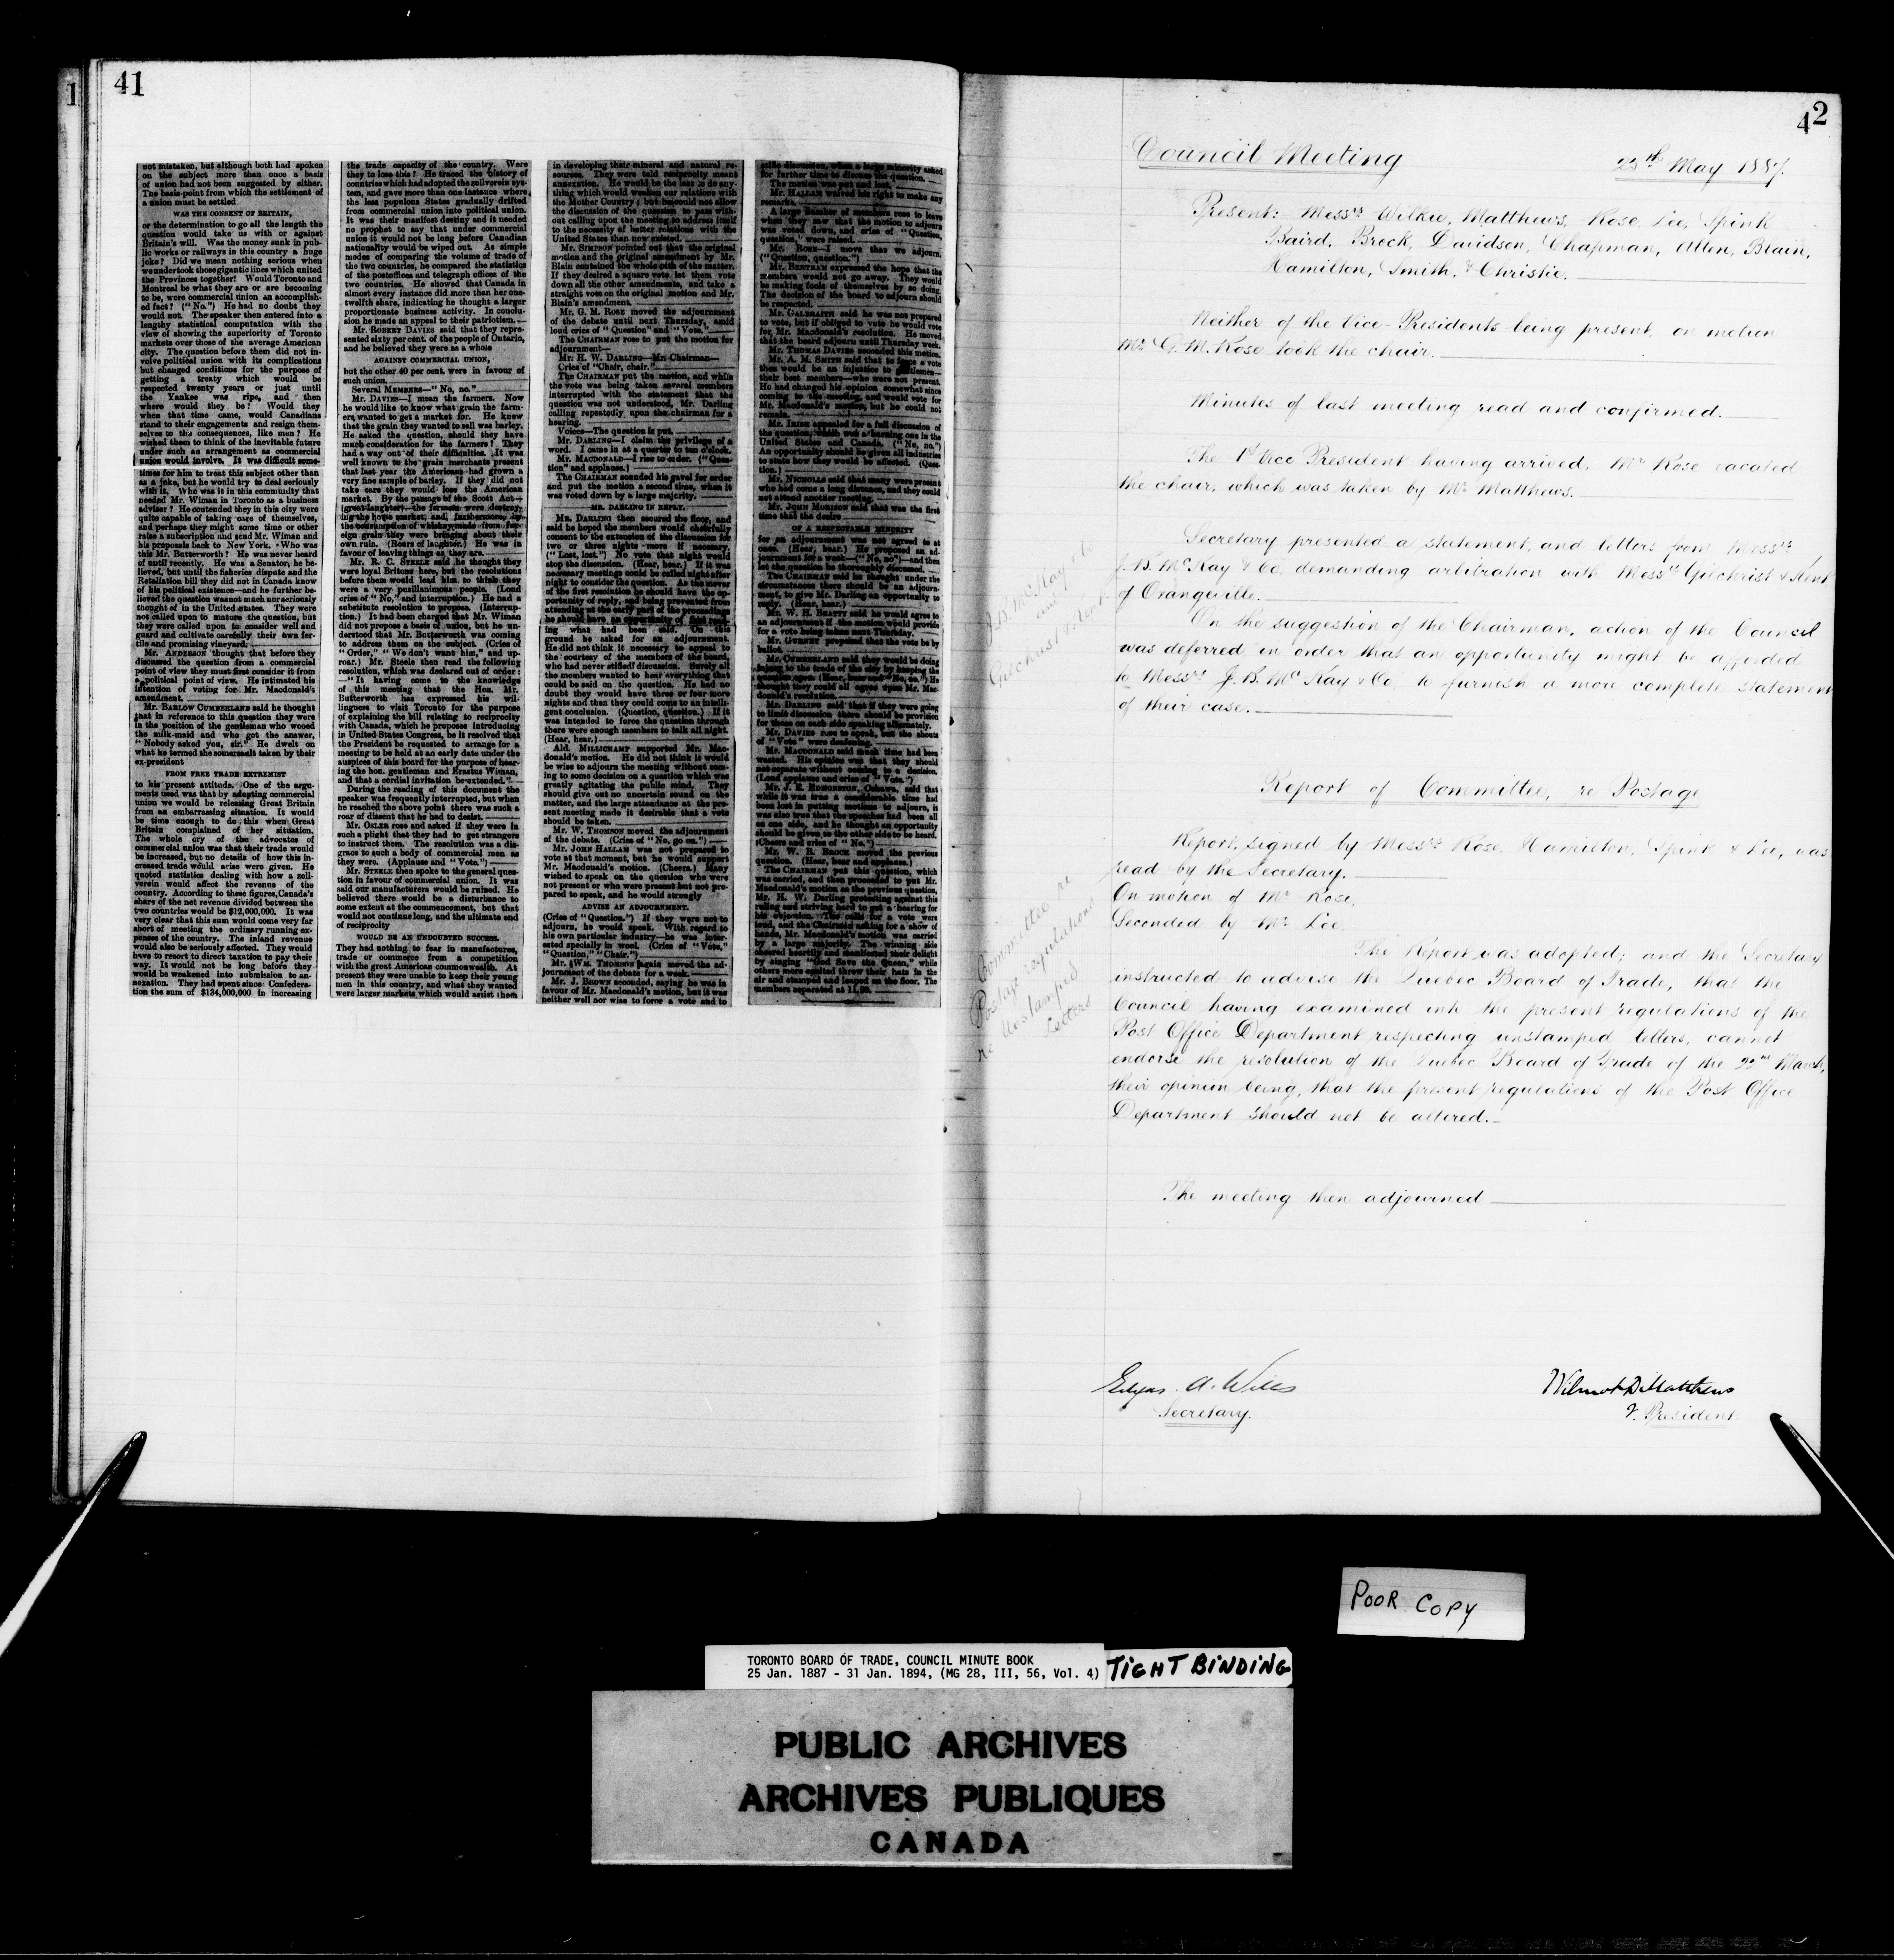 1
41
not mistaken, but although both had spoken
on the subject more than once a basis
of union had not been suggested by either.
The basis-point from which the settlement of
a union must be settled
WAS THE CONSENT OF BRITAIN,
or the determination to go all the length the
question would take us with or against
Britain's will. Was the money sunk in pub-
lic works or railways in this country a huge
joke? Did we mean nothing serious when
we undertook those gigantic lines which united
the Provinces together? Would Toronto and
Montreal be what they are or are becoming
to be, were commercial union an accomplish-
ed fact? ("No.") He had no doubt they
would not. The speaker then entered into a
lengthy statistical computation with the
view of showing the superiority of Toronto
markets over those of the average American
city. The question before them did not in-
volve political union with its complications
but changed conditions for the purpose of
getting a treaty which would be
respected twenty years or just until
the Yankee was ripe, and then
where would they be? Would they
when that time came, would Canadians
stand to their engagements and resign them-
selves to the consequences, like men? He
wished them to think of the inevitable future
under such an arrangement as commercial
union would involve. It was difficult some-
times for him to treat this subject other than
as a joke, but he would try to deal seriously
with it. Who was it in this community that
needed Mr. Wiman in Toronto as a business
adviser? He contended they in this city were
quite capable of taking care of themselves,
and perhaps they might some time or other
raise a subscription and send Mr. Wiman and
his proposals back to New York. Who was
this Mr. Butterworth? He was never heard
of until recently. He was a Senator, he be-
lieved, but until the fisheries dispute and the
Retaliation bill they did not in Canada know
of his political existence—and he further be-
lieved the question was not much nor seriously
thought of in the United States. They were
not called upon to mature the question, but
they were called upon to consider well and
guard and cultivate carefully their own fer-
tile and promising vineyard.
Mr. ANDERSON thought that before they
discussed the question from a commercial
point of view they must first consider it from
a political point of view. He intimated his
intention of voting for Mr. Macdonald's
amendment.
Mr. BARLOW CUMBERLAND said he thought
that in reference to this question they were
in the position of the gentleman who wooed
the milk-maid and who got the answer,
"Nobody asked you, sir." He dwelt on
what he termed the somersault taken by their
ex-president
FROM FREE TRADE EXTREMIST
to his present attitude. One of the argu-
ments used was that by adopting commercial
union we would be releasing Great Britain
from an embarrassing situation. It would
be time enough to do this when Great
Britain complained of her situation.
The whole cry of the advocates of
commercial union was that their trade would
be increased, but no details of how this in-
creased trade would arise were given. He
quoted statistics dealing with how a zoll-
verein would affect the revenue of the
country. According to these figures, Canada's
share of the net revenue divided between the
two countries would be $12,000,000. It was
very clear that this sum would come very far
short of meeting the ordinary running ex-
penses of the country. The inland revenue
would also be seriously affected. They would
have to resort to direct taxation to pay their
way. It would not be long before they
would be weakened into submission to an-
nexation. They had spent since Confedera-
tion the sum of $134,000,000 in increasing
the trade capacity of the country. Were
they to lose this? He traced the history of
countries which had adopted the zollverein sys-
tem, and gave more than one instance where
the less populous States gradually drifted
from commercial union into political union.
It was their manifest destiny and it needed
no prophet to say that under commercial
union it would not be long before Canadian
nationality would be wiped out. As simple
modes of comparing the volume of trade of
the two countries, he compared the statistics
of the postoffices and telegraph offices of the
two countries. He showed that Canada in
almost every instance did more than her one-
twelfth share, indicating he thought a larger
proportionate business activity. In conclu-
sion he made an appeal to their patriotism.
Mr. ROBERT DAVIES said that they repre-
sented sixty per cent. of the people of Ontario,
and he believed they were as a whole
AGAINST COMMERCIAL UNION,
but the other 40 per cent. were in favour of
such union.
Several MEMBERS—"No, no."
Mr. DAVIES—I mean the farmers. Now
he would like to know what grain the farm-
ers wanted to get a market for. He knew
that the grain they wanted to sell was barley.
He asked the question, should they have
much consideration for the farmers? They
had a way out of their difficulties. It was
well known to the grain merchants present
that last year the Americans had grown a
very fine sample of barley. If they did not
take care they would lose the American
market. By the passage of the Scott Act—
(great laughter)—the farmers were destroy-
ing the home market, and, furthermore, by
the consumption of whiskey made from for-
eign grain they were bringing about their
own ruin. (Roars of laughter.) He was in
favour of leaving things as they are.
Mr. R. C. STEELE said he thought they
were loyal Britons here, but the resolutions
before them would lead him to think they
were a very pusillanimous people. (Loud
cries of "No," and interruption.) He had a
substitute resolution to propose. (Interrup-
tion.) It had been charged that Mr. Wiman
did not propose a basis of union, but he un-
derstood that Mr. Butterworth was coming
to address them on the subject. (Cries of
"Order," "We don't want him," and up-
roar.) Mr. Steele then read the following
resolution, which was declared out of order:
—"It having come to the knowledge
of this meeting that the Hon. Mr.
Butterworth has expressed his wil-
lingness to visit Toronto for the purpose
of explaining the bill relating to reciprocity
with Canada, which he proposes introducing
in United States Congress, be it resolved that
the President be requested to arrange for a
meeting to be held at an early date under the
auspices of this board for the purpose of hear-
ing the hon. gentleman and Erastus Wiman,
and that a cordial invitation be extended."
During the reading of this document the
speaker was frequently interrupted, but when
he reached the above point there was such a
roar of dissent that he had to desist.
Mr. OSLER rose and asked if they were in
such a plight that they had to get strangers
to instruct them. The resolution was a dis-
grace to such a body of commercial men as
they were. (Applause and "Vote.")
Mr. STEELE then spoke to the general ques-
tion in favour of commercial union. It was
said our manufacturers would be ruined. He
believed there would be a disturbance to
some extent at the commencement, but that
would not continue long, and the ultimate end
of reciprocity
WOULD BE AN UNDOUBTED SUCCESS.
They had nothing to fear in manufactures,
trade or commerce from a competition
with the great American commonwealth. At
present they were unable to keep their young
men in this country, and what they wanted
were larger markets which would assist them
in developing their mineral and natural re-
sources. They were told reciprocity means
annexation. He would be the last to do any-
thing which would weaken our relations with
the Mother Country; but he could not allow
the discussion of the question to pass with-
out calling upon the meeting to address itself
to the necessity of better relations with the
United States than now existed.
Mr. SIMPSON pointed out that the original
motion and the original amendment by Mr.
Blain contained the whole pith of the matter.
If they desired a square vote, let them vote
down all the other amendments, and take a
straight vote on the original motion and Mr.
Blain's amendment.
Mr. G. M. ROSE moved the adjournment
of the debate until next Thursday, amid
loud cries of "Question" and "Vote."
The CHAIRMAN rose to put the motion for
adjournment—
Mr. H. W. DARLING—Mr. Chairman—
Cries of "Chair, chair."
The CHAIRMAN put the motion, and while
the vote was being taken several members
interrupted with the statement that the
question was not understood, Mr. Darling
calling repeatedly upon the chairman for a
hearing.
Voices—The question is put.
Mr. DARLING—I claim the privilege of a
word. I came in at a quarter to ten o'clock.
Mr. MACDONALD—I rise to order. ("Ques-
tion" and applause.)
The CHAIRMAN sounded his gavel for order
and put the motion a second time, when it
was voted down by a large majority.
MR. DARLING IN REPLY.
MR. DARLING then secured the floor, and
said he hoped the members would cheerfully
consent to the extension of the discussion for
two or three nights more if necessary.
("Lost, lost.") No vote that night would
stop the discussion. (Hear, hear.) If it was
necessary meetings could be called night after
night to consider the question. As the mover
of the first resolution he should have the op-
portunity of reply, and being prevented from
attending at the early part of the proceedings
he should have an opportunity of first read-
ing what had been said. On this
ground he asked for an adjournment.
He did not think it necessary to appeal to
the courtesy of the members of the board,
who had never stifled discussion. Surely all
the members wanted to hear everything that
could be said on the question. He had no
doubt they would have three or four more
nights and then they could come to an intelli-
gent conclusion. (Question, question.) If it
was intended to force the question through
there were enough members to talk all night.
(Hear, hear.)
Ald. MILLICHAMP supported Mr. Mac-
donald's motion. He did not think it would
be wise to adjourn the meeting without com-
ing to some decision on a question which was
greatly agitating the public mind. They
should give out no uncertain sound on the
matter, and the large attendance at the pre-
sent meeting made it desirable that a vote
should be taken.
Mr. W. THOMSON moved the adjournment
of the debate. (Cries of "No, go on.")
Mr. JOHN HALLAM was not prepared to
vote at that moment, but he would support
Mr. Macdonald's motion. (Cheers.) Many
wished to speak on the question who were
not present or who were present but not pre-
pared to speak, and he would strongly
ADVISE AN ADJOURNMENT.
(Cries of "Question.") If they were not to
adjourn, he would speak. With regard to
his own particular industry—he was inter-
ested specially in wool. (Cries of "Vote,"
"Question," "Chair.")
Mr. WM. THOMSON again moved the ad-
journment of the debate for a week.
Mr. J. BROWN seconded, saying he was in
favour of Mr. Macdonald's motion, but it was
neither well nor wise to force a vote and to
stifle discussion, when a large minority asked
for further time to discuss the question.
The motion was put and lost.
Mr. HALLAM waived his right to make any
remarks.
A large number of members rose to leave
when they saw that the motion to adjourn
was voted down, and cries of "Question,
question," were raised.
Mr. ROSE—I move that we adjourn.
("Question, question.")
Mr. BERTRAM expressed the hope that the
members would not go away. They would
be making fools of themselves by so doing.
The decision of the board to adjourn should
be respected.
Mr. GALBRAITH said he was not prepared
to vote, but if obliged to vote he would vote
for Mr. Macdonald's resolution. He moved
that the board adjourn until Thursday week.
Mr. THOMAS DAVIES seconded this motion.
Mr. A. M. SMITH said that to force a vote
then would be an injustice to gentlemen—
their best members—who were not present.
He had changed his opinion somewhat since
coming to the meeting, and would vote for
Mr. Macdonald's motion, but he could not
remain.
appealed for a full discussion of
the question, which was a burning one in the
United States and Canada. ("No, no.")
An opportunity should be given all industries
to state how they would be affected. (Ques-
tion.)
Mr. NICHOLLS said that many were present
who had come a long distance, and they could
not attend another meeting.
Mr. JOHN MORISON said that was the first
time that the desire
OF A RESPECTABLE MINORITY
for an adjournment was not agreed to at
once. (Hear, hear.) He proposed an ad-
journment for a week—("No, no")—and then
let the question be thoroughly discussed.
The CHAIRMAN said he thought under the
circumstances there should be an adjourn-
ment, to give Mr. Darling an opportunity to
reply. (Hear, hear.)
Mr. W. H. BEATTY said he would agree to
an adjournment if the motion would provide
for a vote being taken next Thursday.
Mr. GURNEY proposed that the vote be by
ballot.
Mr. CUMBERLAND said they would be doing
injury to the trade of the city by longer
(Hear, hear, and "No, no.") He
thought they could all agree upon Mr. Mac-
donald's resolution.
Mr. DARLING said that if they were going
to limit discussion there should be provision
for those on each side speaking alternately.
Mr. DAVIES rose to speak, but the shouts
of "Vote" were deafening.
Mr. MACDONALD said much time had been
wasted. His opinion was that they should
not separate without coming to a decision.
(Loud applause and cries of "Vote.")
Mr. J. E. EDMONSTON, Oshawa, said that
while it was true a considerable time had
been lost in putting motions to adjourn, it
was also true that the speeches had been all
on one side, and he thought an opportunity
should be given to the other side to be heard.
(Cheers and cries of "No.")
Mr. W. R. BROCK moved the previous
question. (Hear, hear and applause.)
The CHAIRMAN put this question, which
was carried, and then proceeded to put Mr.
Macdonald's motion as the previous question,
Mr. H. W. Darling protesting against this
ruling and striving hard to get a hearing for
his objection. The calls for a vote were
loud, and the Chairman asking for a show of
hands, Mr. Macdonald's motion was carried
by a large majority. The winning side
cheered heartily and manifested their delight
by singing "God Save the Queen," while
others more excited threw their hats in the
air and stamped and leaped on the floor. The
members separated at 11.50.
42
Council Meeting
25th May 1887.
Present: Messrs Wilkie, Matthews, Rose, Lee, Spink
Baird, Brock, Davidson, Chapman, Allen, Blain,
Hamilton, Smith, & Christie.
Neither of the Vice-Presidents being present, on motion
Mr G. M. Rose took the chair.
Minutes of last meeting read and confirmed.
The 1st Vice President having arrived, Mr Rose vacated
the chair, which was taken by Mr Matthews.
J. B. McKay & Co
and
Gilchrist & Kent
Secretary presented a statement, and letters from Messrs
J. B. McKay & Co. demanding arbitration with Messrs Gilchrist & Kent
of Orangeville.
On the suggestion of the Chairman, action of the Council
was deferred in order that an opportunity might be afforded
to Messrs J. B. McKay & Co, to furnish a more complete statement
of their case.
Report of Committee, re Postage
Committee re
Postage regulations
re Unstamped
Letters
Report, signed by Messrs Rose, Hamilton, Spink & Lee, was
read by the Secretary.
On motion of Mr Rose,
Seconded by Mr Lee,
The Report was adopted; and the Secretary
instructed to advise the Quebec Board of Trade, that the
Council having examined into the present regulations of the
Post Office Department respecting unstamped letters, cannot
endorse the resolution of the Quebec Board of Trade of the 22nd March,
their opinion being, that the present regulations of the Post Office
Department should not be altered.
The meeting then adjourned
Edgar A. Wills
Secretary.
Wilmot D Matthews
V. President
POOR COPY
TORONTO BOARD OF TRADE, COUNCIL MINUTE BOOK
25 Jan. 1887 - 31 Jan. 1894, (MG 28, III, 56, Vol. 4)
TIGHT BINDING
PUBLIC ARCHIVES
ARCHIVES PUBLIQUES
CANADA